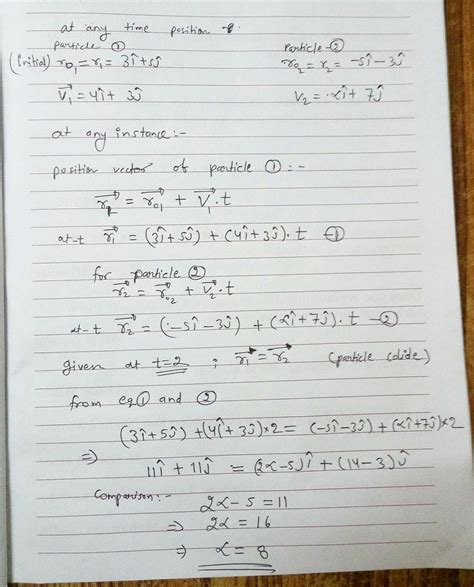 at any time position
particle ① particle-②
(initial) r₀₁ = r₁ = 3î+5ĵ r₀₂ = r₂ = -5î-3ĵ
v₁ = 4î + 3ĵ v₂ = αî + 7ĵ
at any instance:-
position vector of particle ① :-
= r₀₁ + v₁.t
at-t r₁ = (3î+5ĵ) + (4î+3ĵ).t -①
for particle ②
r₂ = r₀₂ + v₂.t
at-t r₂ = (-5î-3ĵ) + (αî+7ĵ).t -②
given at t=2 ; r₁ = r₂ (particle colide)
from eq① and ②
(3î+5ĵ) + (4î+3ĵ)×2 = (-5î-3ĵ) + (αî+7ĵ)×2
⇒ 11î + 11ĵ = (2α-5)î + (14-3)ĵ
Comparison:-
2α-5 = 11
⇒ 2α = 16
⇒ α = 8